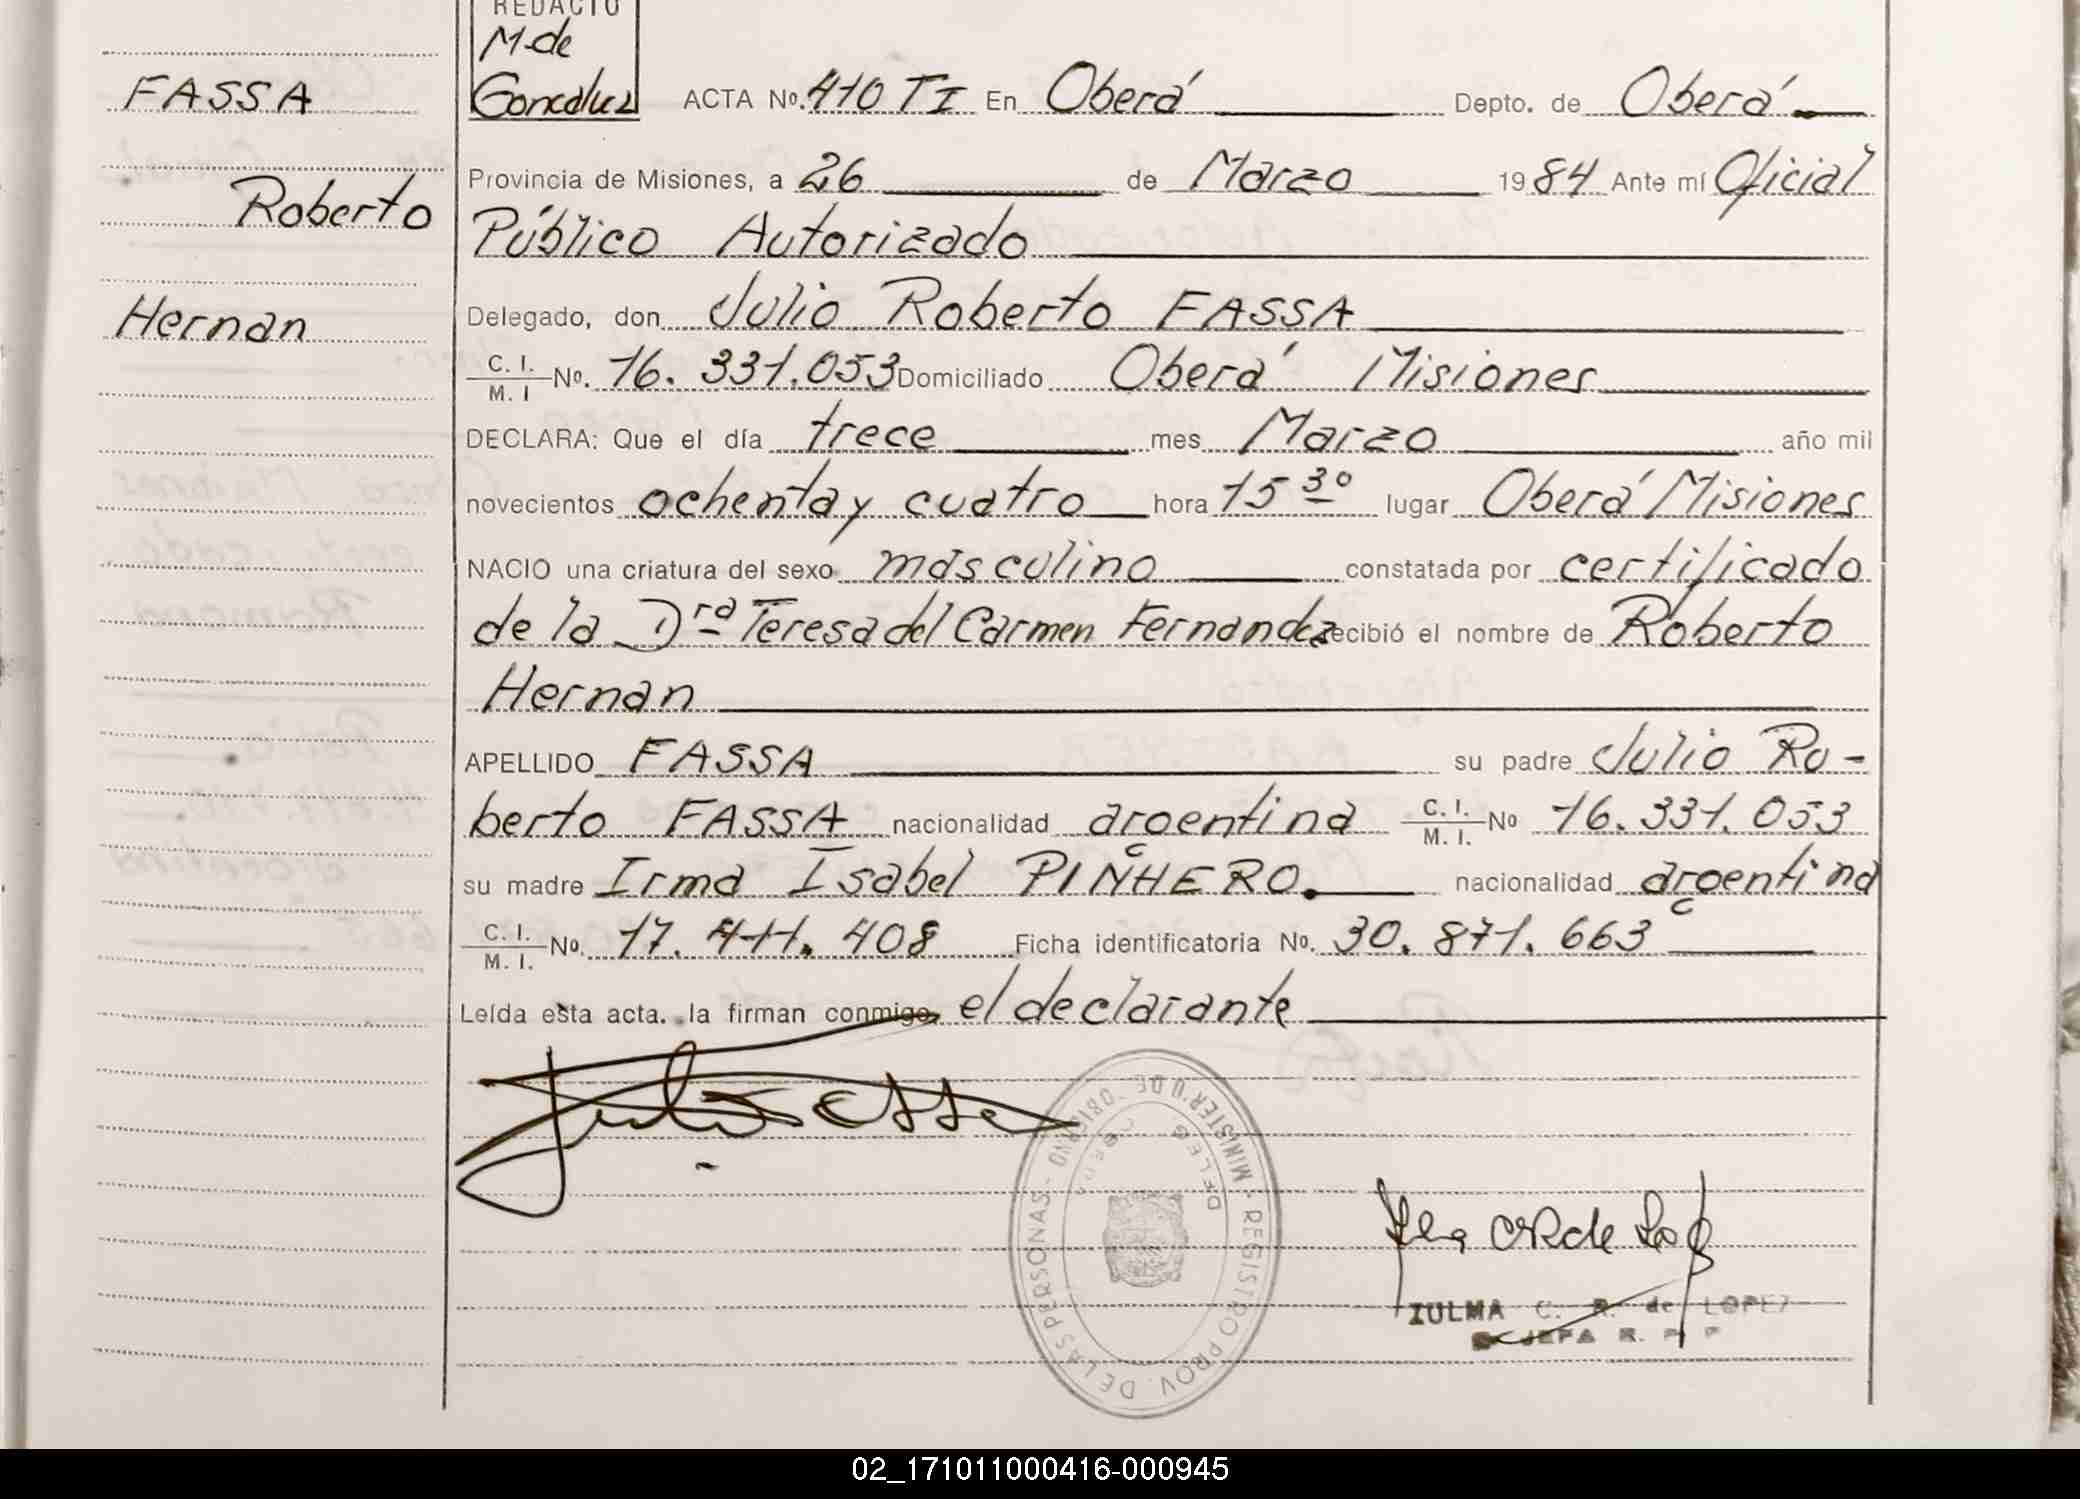 REDACTO
M. de
Goncalvez
FASSA
Roberto
Hernan
ACTA No. 410 TI En Oberá Depto. de Oberá
Provincia de Misiones, a 26 de Marzo 1984 Ante mí Oficial
Público Autorizado
Delegado, don Julio Roberto FASSA
C. I. / M. I No. 16. 331.053 Domiciliado Oberá Misiones
DECLARA: Que el día trece mes Marzo año mil
novecientos ochenta y cuatro hora 15 30 lugar Oberá Misiones
NACIO una criatura del sexo masculino constatada por certificado
de la Dra Teresa del Carmen Fernandez recibió el nombre de Roberto
Hernan
APELLIDO FASSA su padre Julio Ro-
berto FASSA nacionalidad argentina C. I. / M. I. No 16. 331. 053
su madre Irma Isabel PINHERO. nacionalidad argentina
C. I. / M. I. No. 17. 411. 408 Ficha identificatoria No. 30. 871. 663
Leída esta acta. la firman conmigo, el declarante
MINISTERIO DE GOBIERNO - REGISTRO PROV. DE LAS PERSONAS
DELEG OBERA
ZULMA C. R. de LOPEZ
JEFA R. P. P
02_171011000416-000945